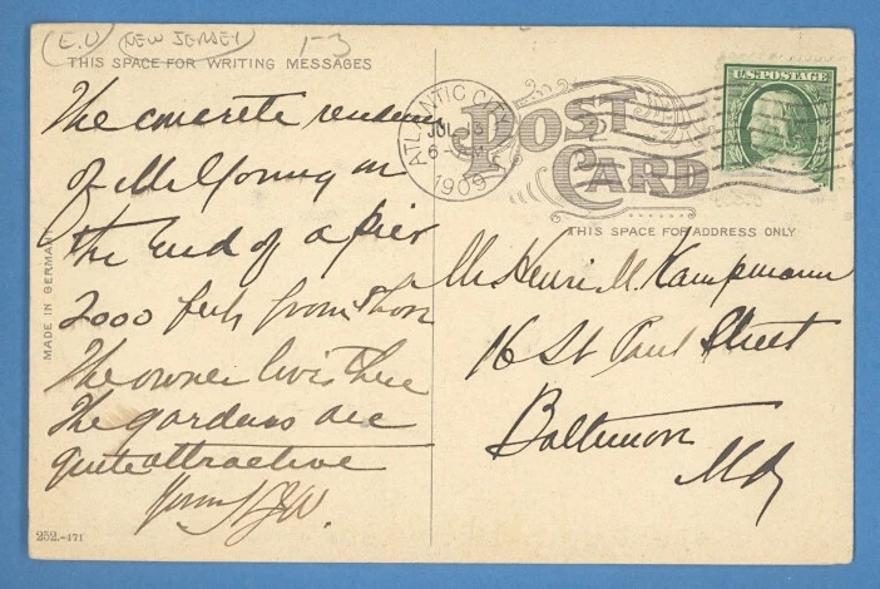 (E.U) (NEW JERSEY) 1-3
THIS SPACE FOR WRITING MESSAGES
The concrete residence
of Mr Young on
the End of a pier
2000 feet from shore
The owner lives there
The gardens are
quite attractive
MADE IN GERMANY
252.-471
ATLANTIC CITY
JUL 13
6-
1909
POST CARD
U.S. POSTAGE
THIS SPACE FOR ADDRESS ONLY
Mr Henri M. Kampmann
16 St Paul Street
Baltimore
Md